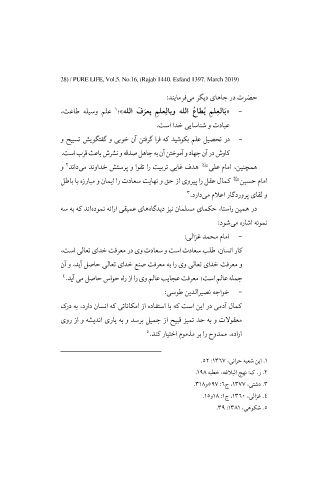 28) / PURE LIFE, Vol.5. No.16, (Rajab 1440. Esfand 1397. March 2019)
حضرت در جاهای دیگر می‌فرمایند:
- «بِالعِلمِ یُطاعُ الله وبِالعِلمِ یعرَفُ الله»؛۱ علم وسیله طاعت،
عبادت و شناسایی خدا است.
- در تحصیل علم بکوشید که فرا گرفتن آن خوبی و گفتگویش تسبیح و
کاوش در آن جهاد و آموختن آن به جاهل صدقه و نشرش باعث قرب است.
همچنین، امام علی هدف غایی تربیت را تقوا و پرستش خداوند می‌داند۲ و
امام حسین کمال عقل را پیروی از حق و نهایت سعادت را ایمان و مبارزه با باطل
و لقای پروردگار اعلام می‌دارد.۳
در همین راستا، حکمای مسلمان نیز دیدگاه‌های عمیقی ارائه نموده‌اند که به سه
نمونه اشاره می‌شود:
- امام محمد غزالی:
کار انسان، طلب سعادت است و سعادت وی در معرفت خدای تعالی است،
و معرفت خدای تعالی وی را به معرفت صنع خدای تعالی حاصل آید. و آن
جمله عالم است؛ معرفت عجایب عالم وی را از راه حواس حاصل می آید.۴
- خواجه نصیرالدین طوسی:
کمال آدمی در این است که با استفاده از امکاناتی که انسان دارد، به درک
معقولات و به حد تمیز قبیح از جمیل برسد و به یاری اندیشه و از روی
اراده، ممدوح را بر مذموم اختیار کند.۵
۱. ابن شعبه حرانی، ۱۳۶۷: ۵۲.
۲. ر. ک: نهج البلاغه، خطبه ۱۹۸.
۳. دشتی، ۱۳۷۷، ج۶: ۶۹۷و۳۱۸.
۴. غزالی، ۱۳۶۰، ج۱: ۱۸و۱۵.
۵. شکوهی، ۱۳۸۱: ۳۹.